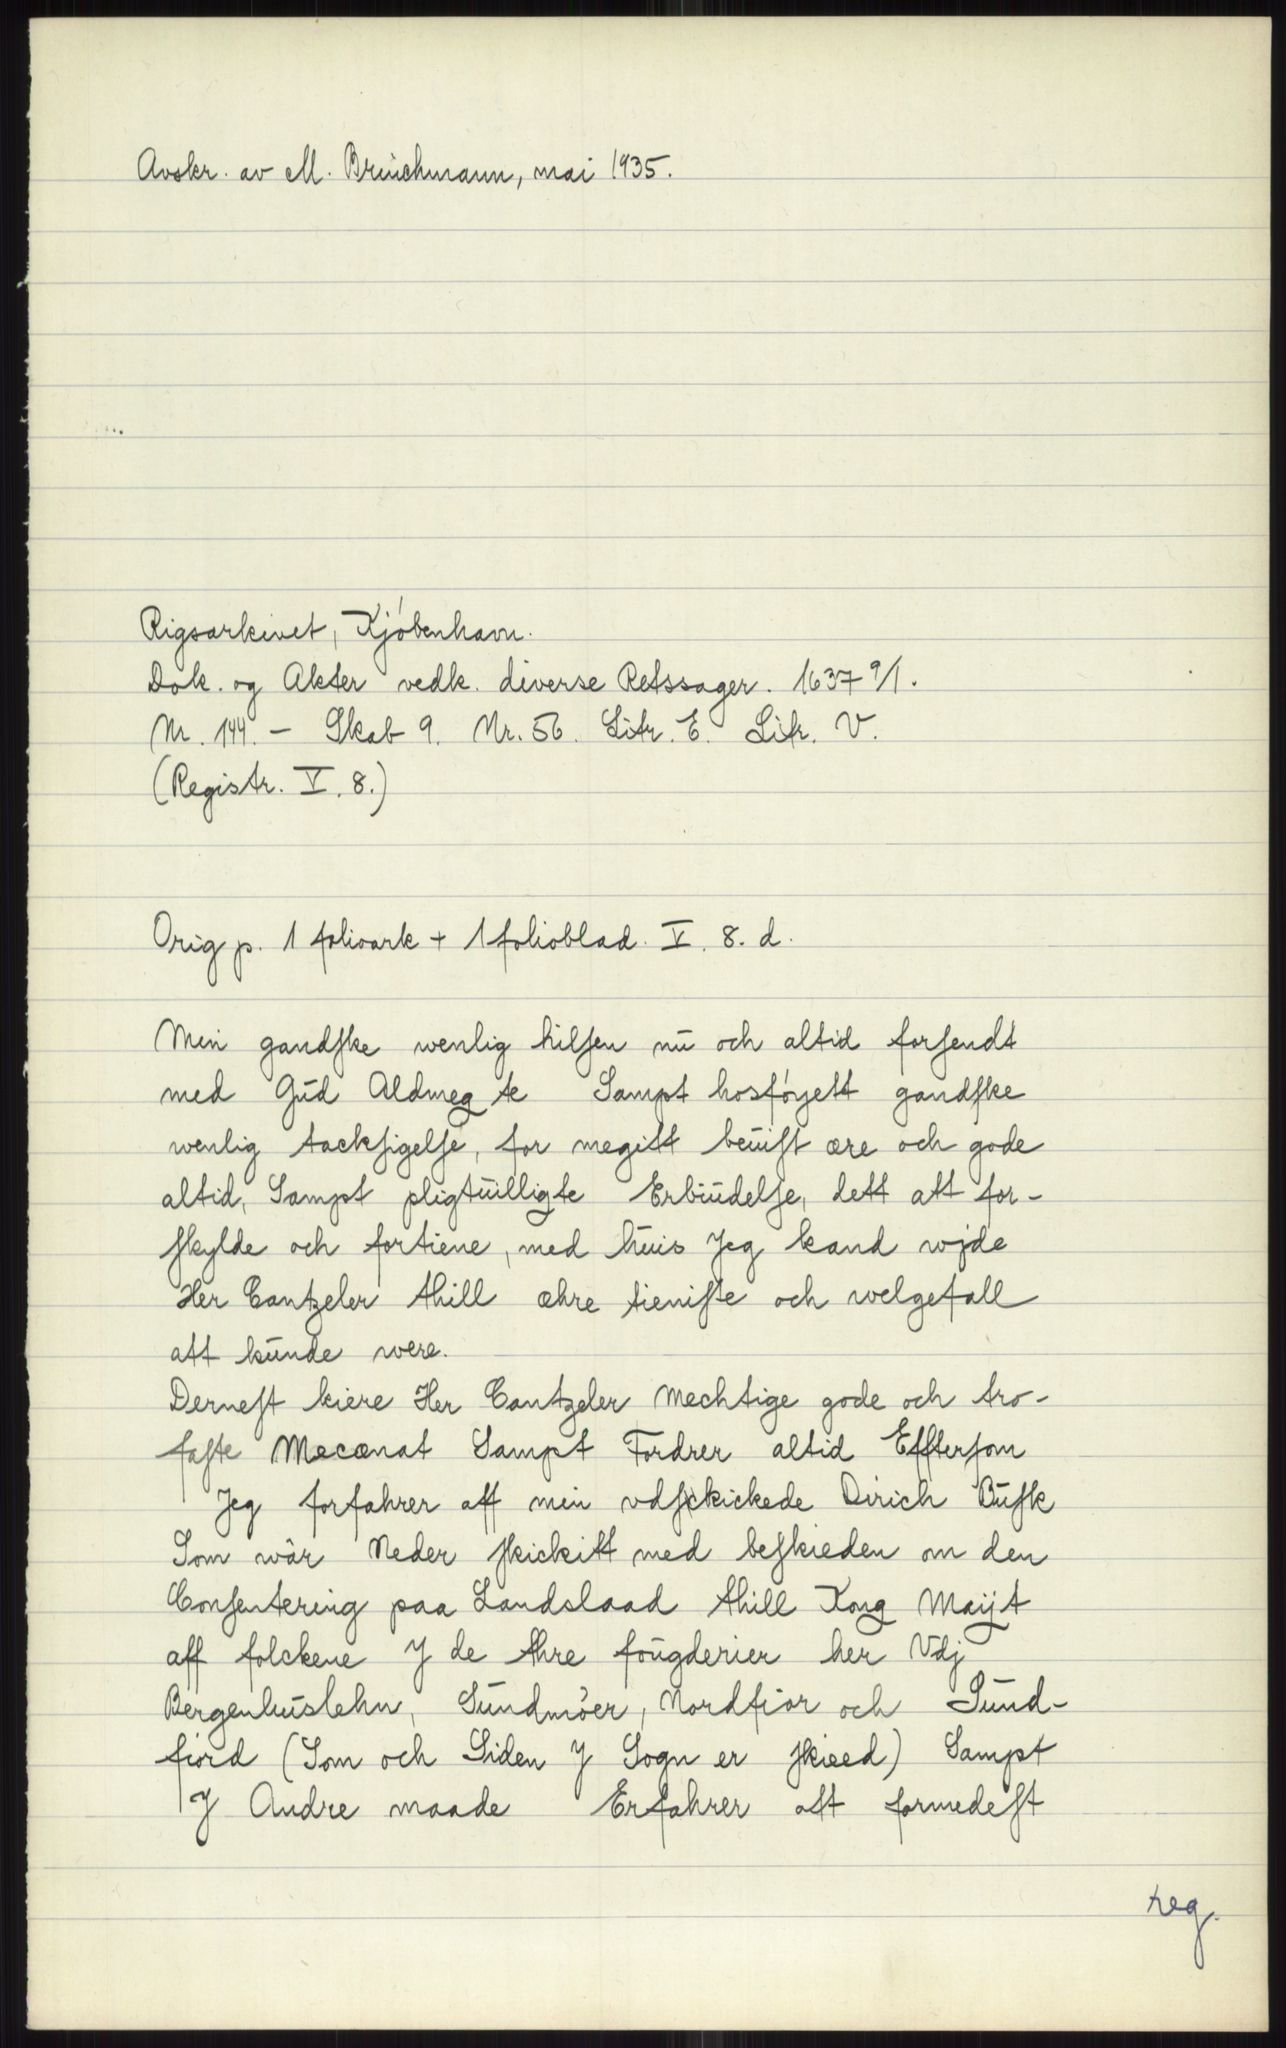 Avskr. av M. Brinchmann, mai 1935.
Rigsarkivet, Kjøbenhavn.
Dok. og Akter vedk. diverse Retssager. 1637 9/1.
Nr. 144. – Skab 9. Nr. 56. Litr. E. Litr. V.
(Registr. V. 8.)
Orig p. 1 folioark + 1 folioblad. V. 8. d.
Min gandske wenlig hilsen nu och altid forsendt
med Gud Aldmegte Sampt hosføyett gandske
wenlig tacksigelse, for megitt beuist ære och gode
altid, Sampt pligtuilligte Erbiudelse, dett att for-
skylde och fortiene, med huis Jeg kand wide
Her Cantzeler thill æhre tieniste och welgefall
att kunde were.
Dernest kiere Her Cantzeler Mechtige gode och tro-
faste Mecænat Sampt Fordrer altid Efftersom
Jeg forfahrer aff min vdschickede Dirich Busk
Som wår Neder skickitt med beskieden om den
Consentering paa Landslaad thill Kong Maijt
aff folckene J de thre fougderier her Vdj
Bergenhuslehn, Sundmøer, Nordfior och Sund-
fiord (Som och Siden J Sogn er skieed) Sampt
J Andre maade Erfahrer att formedest
reg.